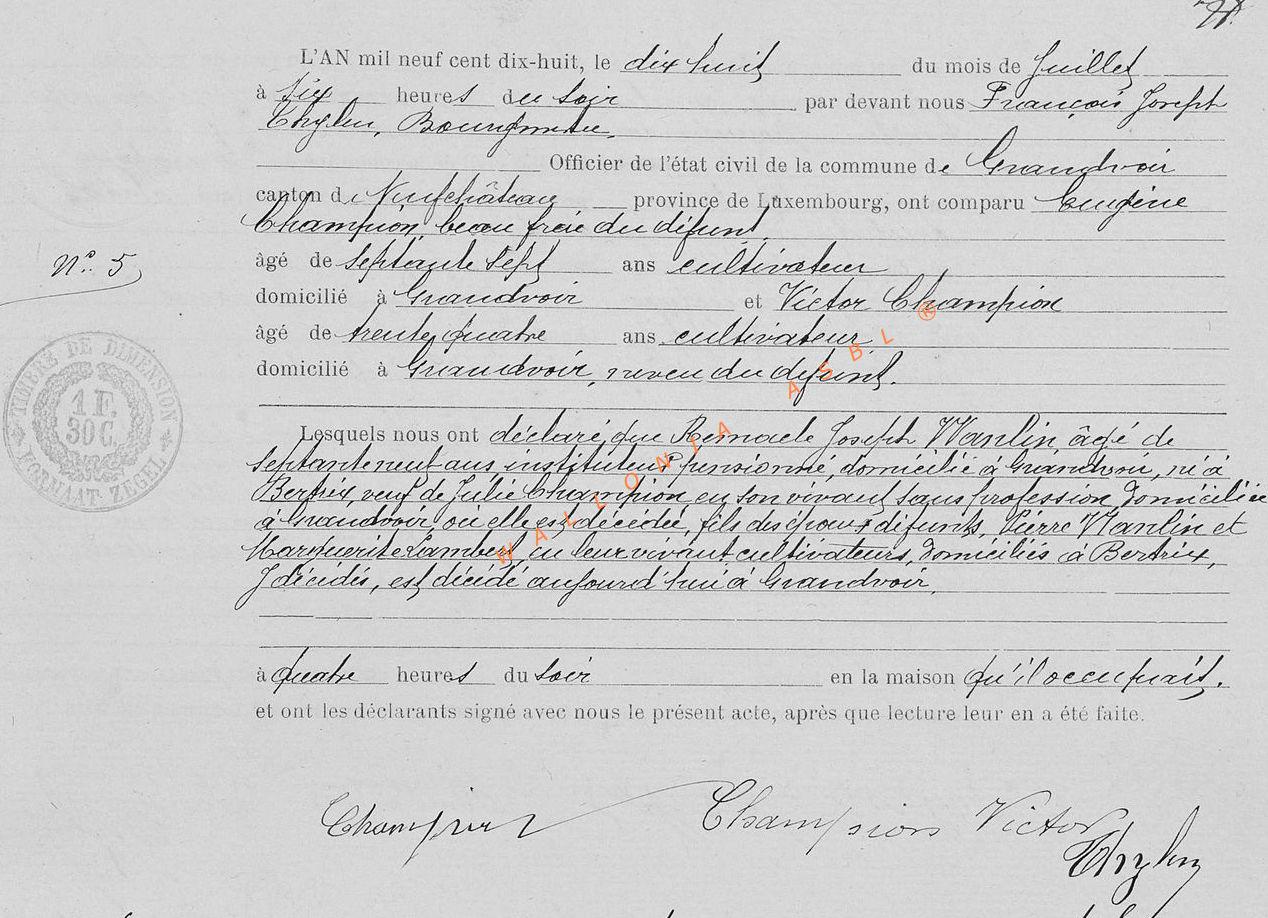 L'AN mil neuf cent dix-huit, le dix huit du mois de Juillet
à six heures du soir par devant nous François Joseph
Thylen, Bourgmestre,
Officier de l'état civil de la commune de Grandvoir
canton de Neufchâteau province de Luxembourg, ont comparu Eugène
Champion, beau frère du défunt
N° 5
âgé de septante sept ans cultivateur
domicilié à Grandvoir et Victor Champion
âgé de trente quatre ans cultivateur
domicilié à Grandvoir, neveu du défunt.
TIMBRE DE DIMENSION
1 F.
30 C.
FORMAAT ZEGEL
Lesquels nous ont déclaré que Remacle Joseph Wanlin, âgé de
septante neuf ans, instituteur pensionné, domicilié à Grandvoir, né à
Bertrix, veuf de Julie Champion, en son vivant sans profession, domiciliée
à Grandvoir, où elle est décédée, fils des époux défunts, Pierre Wanlin et
Marguerite Lambert, en leur vivant cultivateurs, domiciliés à Bertrix,
y décédés, est décédé aujourd'hui à Grandvoir,
WALLONIA ASBL ®
à quatre heures du soir en la maison qu'il occupait.
et ont les déclarants signé avec nous le présent acte, après que lecture leur en a été faite.
Champion Champion Victor
Thylen